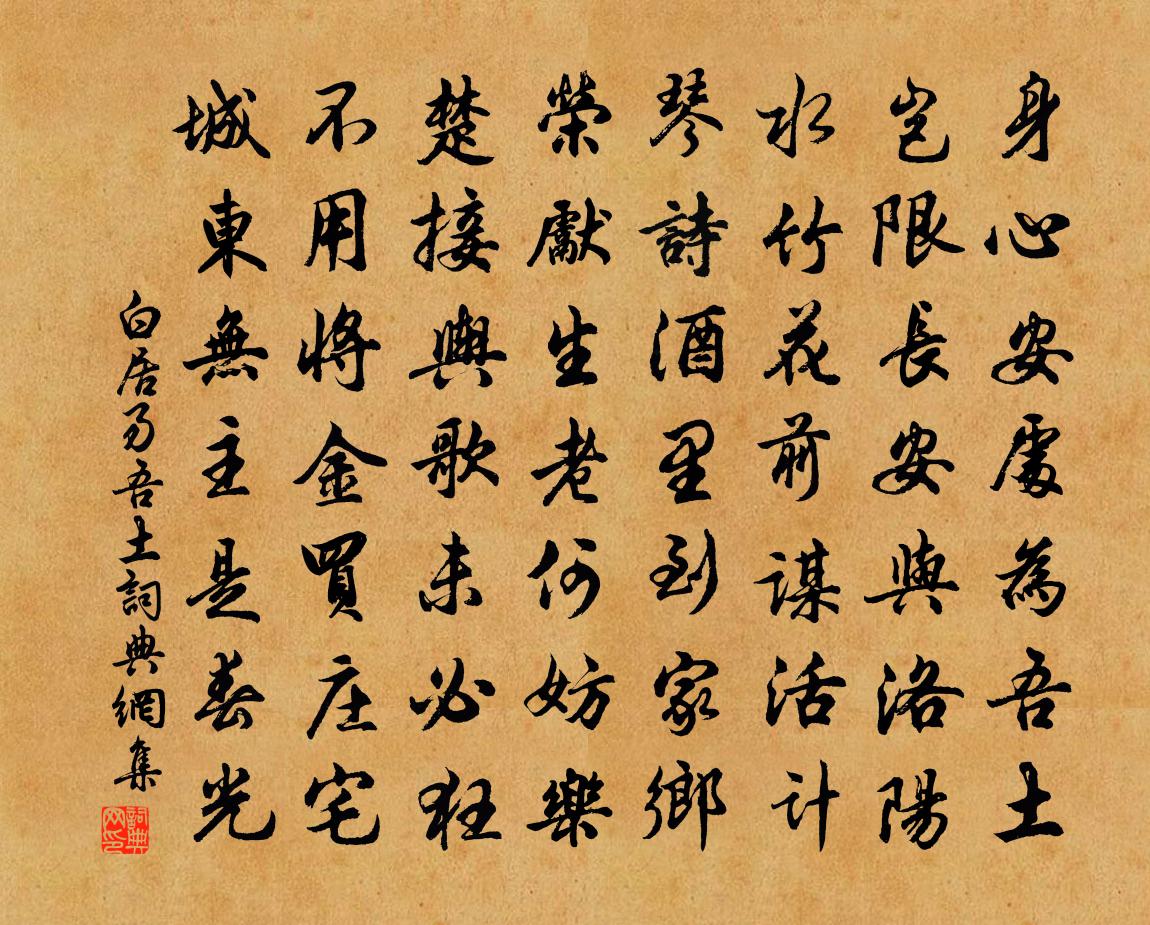 身心安處為吾土
豈限長安與洛陽
水竹花前謀活計
琴詩酒里到家鄉
榮獻生老何妨樂
楚接輿歌未必狂
不用將金買庄宅
城東無主是春光
白居易吾土詞典網集
詞典网印